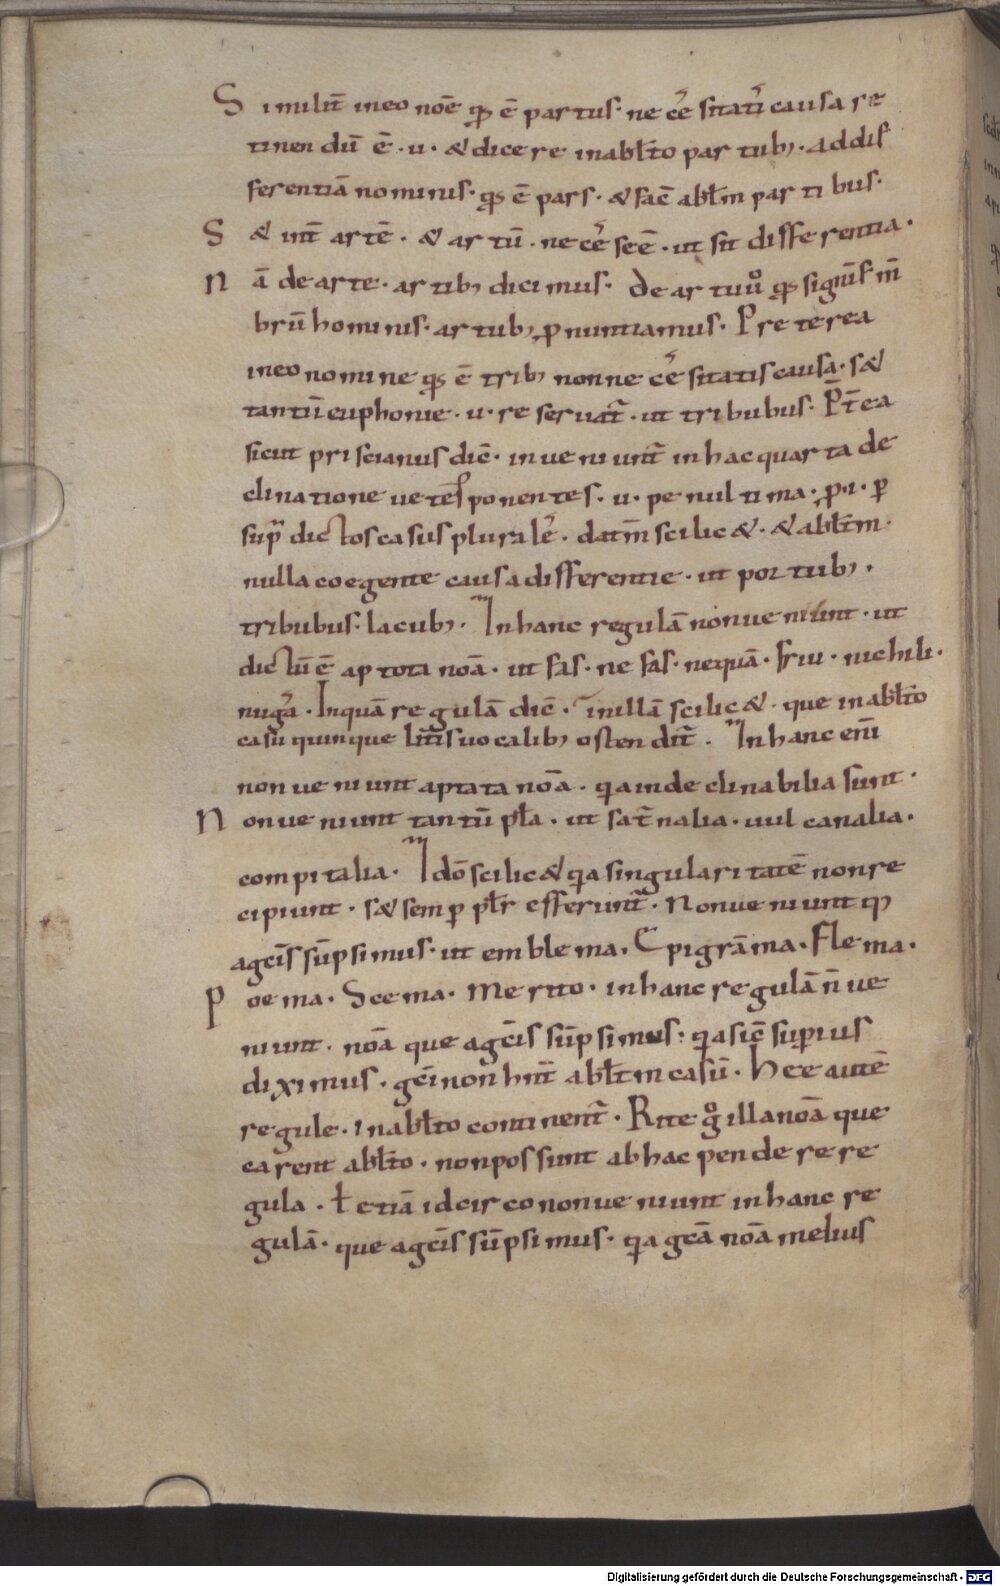 Similit̄ ineo noē qđ ē partus· necēsitatı̄ causa re
tinendū ē· u· & dicere inabl̄to partubꝫ· ad dif
ferentiā nominis· qđ ē pars· & facē abl̄m partibus·
S& int̄ artē· & artū· necēseē· ut sit differentia·
Nā de arte· artibꝫ dicimus· De artu ů qđ signif̄ m̄
brū hominis· artubꝫ ꝓnuntiamus· Preterea
ineo nomine qđ ē tribꝫ non necēsitatis causa· s&
tantū euphonie· u· reseruat̄· ut tribubus· P̄t̄ea
sicut priscianus dic̄· inueniunt̄ inhac quarta de
clinatione uetēs ponentes· u· penultima· ꝓ· i· ꝑ
sup̄ dictos casus pluralē· datm̄ scilic&· & abl̄m·
nulla coegente causa differentie· ut portubꝫ·
tribubus· lacubꝫ· Inhanc regulā non ueniunt· ut
dictū ē aptota noā· ut fas· nefas· nequā· friu· nichili·
nugā· Inquā regulā dic̄· inillā scilic&· que inabl̄to
casu quinque lit̄is uocalibꝫ ostendit̄· Inhanc enī
non ueniunt aptata noā· qa indeclinabilia sunt·
Non ueniunt tantū pl̄a· ut sat̄nalia· uulcanalia·
compitalia· Idō scilic& qa singularitatē non re
cipiunt· s& semꝑ pl̄r efferunt̄· Non ueniunt qꝫ
agc̄is sūpsimus· ut emblema· Epigrāma· Flema·
Poema· Scema· Merito· inhanc regulā n̄ ue
niunt· noā que agc̄is sūpsimus· qa sic̄ supius
diximus· gc̄i non hn̄t abl̄m casū· Hee autē
regule· inabl̄to continent̄· Rite g° illa noā que
carent abl̄to· non possunt abhac pendere re
gula· ł etiā idcirco non ueniunt inhanc re
gulā· que agc̄is sūpsimus· qa gc̄a noā melius
Digitalisierung gefördert durch die Deutsche Forschungsgemeinschaft - DFG